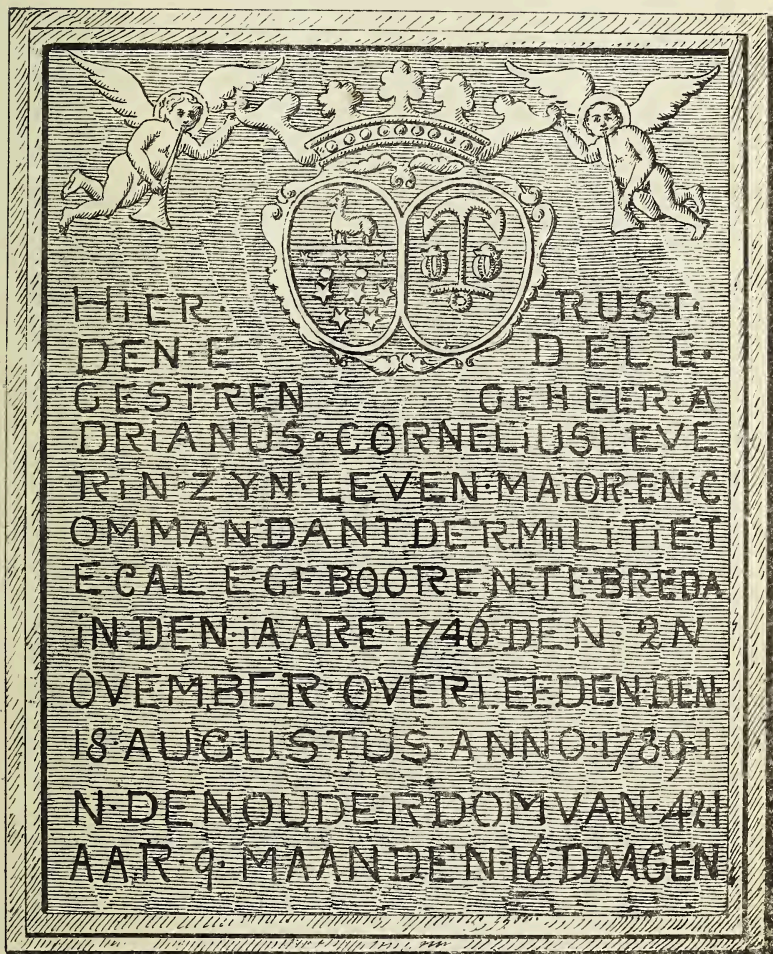 HiER· RUST·
DEN·E DELE·
GESTREN GEHEER·A
DRiANUS·CORNELiUSLEVE
RiN·ZYN·LEVEN·MAiOR·EN·C
OMMANDANTDER·MiLiTiE·T
E·CAL E·GEBOOREN·TE·BREDA
iN·DEN·iAARE·1746·DEN·2N
OVEMBER·OVERLEEDEN·DEN·
18·AUGUSTUS·ANNO·1789·I
N·DENOUDERDOMVAN·42·I
AAR·9·MAANDEN·16·DAAGEN